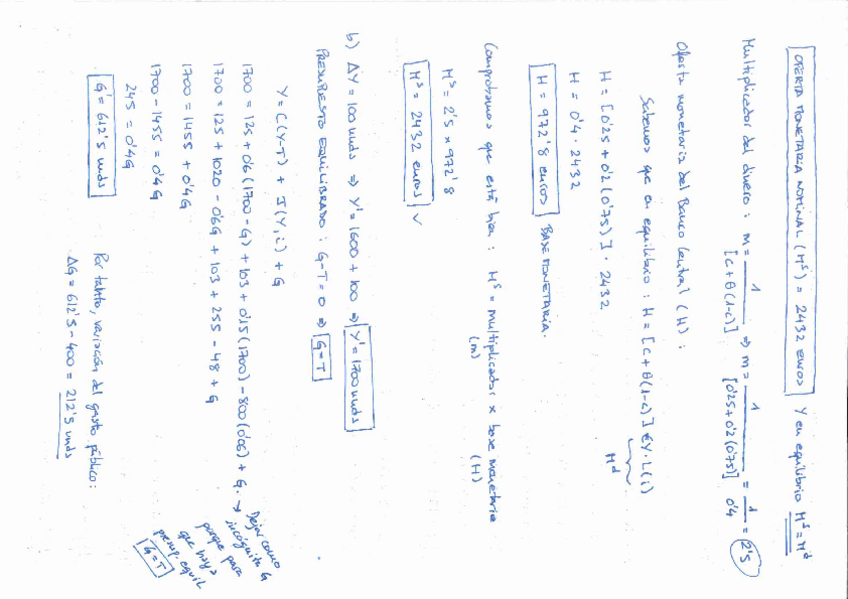 OFERTA MONETARIA NOMINAL (Mˢ) = 2432 euros Y en equilibrio Mˢ = Mᵈ
Multiplicador del dinero : m = 1 / [c + θ(1-c)] ⇒ m = 1 / [0'25 + 0'2(0'75)] = 1 / 0'4 = 2'5
Oferta monetaria del Banco Central (H) :
Sabemos que en equilibrio : H = [c + θ(1-c)] €Y·L(i)
Mᵈ
H = [0'25 + 0'2(0'75)] · 2432
H = 0'4 · 2432
H = 972'8 euros BASE MONETARIA.
Comprobamos que está bien : Mˢ = multiplicador x base monetaria
(m) (H)
Mˢ = 2'5 x 972'8
Mˢ = 2432 euros ✓
b) ΔY = 100 unds ⇒ Y' = 1600 + 100 ⇒ Y' = 1700 unds
PRESUPUESTO EQUILIBRADO : G-T = 0 ⇒ G = T
Y = C(Y-T) + I(Y,i) + G
1700 = 125 + 0'6(1700 - G) + 103 + 0'15(1700) - 800(0'06) + G. → Dejar como
incógnita G
porque para
que haya
presup. equil
G = T
1700 = 125 + 1020 - 0'6G + 103 + 255 - 48 + G
1700 = 1455 + 0'4G
1700 - 1455 = 0'4G
245 = 0'4G
G' = 612'5 unds
Por tanto, variación del gasto público :
ΔG = 612'5 - 400 = 212'5 unds